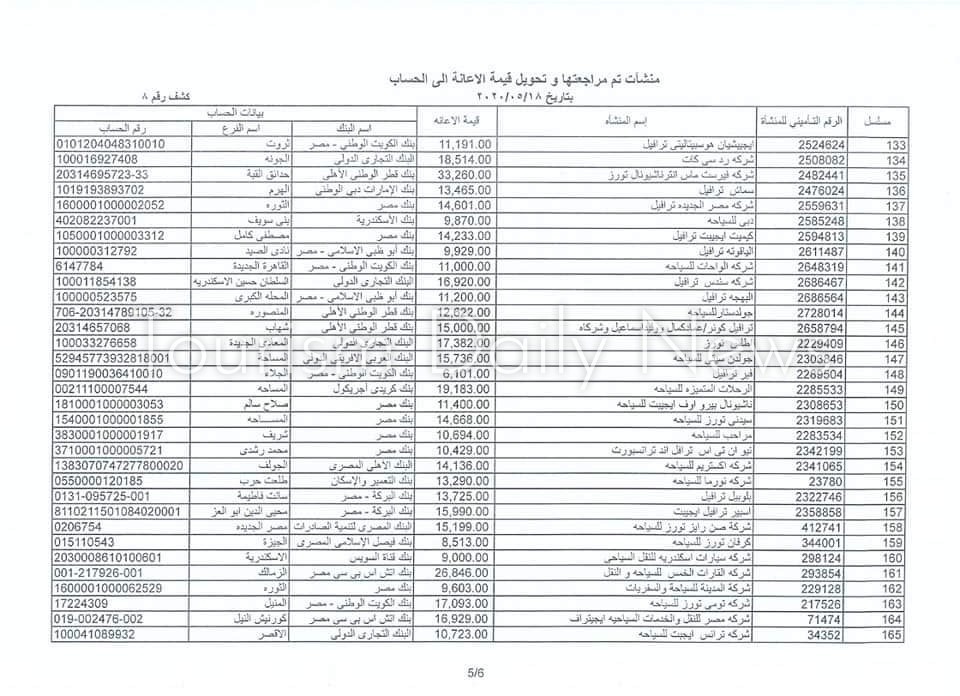 منشآت تم مراجعتها و تحويل قيمة الاعانة الى الحساب
بتاريخ ٢٠٢٠/٠٥/١٨ كشف رقم ٨
مسلسل الرقم التأميني للمنشأة إسم المنشأه قيمة الاعانه بيانات الحساب
اسم البنك اسم الفرع رقم الحساب
133 2524624 ايجيبشيان هوسبيتاليتى ترافيل 11,191.00 بنك الكويت الوطني - مصر ثروت 0101204048310010
134 2508082 شركه رد سي كات 18,514.00 البنك التجارى الدولى الجونه 100016927408
135 2482441 شركه فيرست ماس انترناشيونال تورز 33,260.00 بنك قطر الوطني الأهلى حدائق القبة 20314695723-33
136 2476024 سماش ترافيل 13,465.00 بنك الإمارات دبي الوطني الهرم 1019193893702
137 2559631 شركه مصر الجديده ترافيل 14,601.00 بنك مصر الثوره 1600001000002052
138 2585248 دبى للسياحه 9,870.00 بنك الأسكندرية بنى سويف 402082237001
139 2594813 كيميت ايجيبت ترافيل 14,233.00 بنك مصر مصطفى كامل 1050001000003312
140 2611487 الياقوته ترافيل 9,929.00 بنك أبو ظبى الاسلامى - مصر نادى الصيد 100000312792
141 2648319 شركه الواحات للسياحه 11,000.00 بنك الكويت الوطنى - مصر القاهرة الجديدة 6147784
142 2686467 شركه سندس ترافيل 16,920.00 البنك التجارى الدولى السلطان حسين الاسكندريه 100011854138
143 2686564 البهجه ترافيل 11,200.00 بنك أبو ظبى الاسلامى - مصر المحله الكبرى 100000523575
144 2728014 جولدستار للسياحه 12,622.00 بنك قطر الوطني الأهلى المنصوره 706-20314789105-32
145 2658794 ترافيل كونر/عمادكمال وليد اسماعيل وشركاه 15,000.00 بنك قطر الوطني الأهلى شهاب 20314657068
146 2229409 اطلس تورز 17,382.00 البنك التجارى الدولى المعادى الجديدة 100033276658
147 2303846 جولدن سيتى للسياحه 15,736.00 البنك العربى الافريقى الدولى المساحة 529457739328​18001
148 2269504 فير ترافيل 6,101.00 بنك الكويت الوطنى - مصر الجلاء 0901190036410010
149 2285533 الرحلات المتميزه للسياحه 19,183.00 بنك كريدى أجريكول المساحه 00211100007544
150 2308653 ناشيونال بيرو اوف ايجيبت للسياحه 11,400.00 بنك مصر صلاح سالم 1810001000003053
151 2319683 سيدني تورز للسياحه 14,668.00 بنك مصر المساحه 1540001000001855
152 2283534 مراحب للسياحه 10,694.00 بنك مصر شريف 3830001000001917
153 2342199 نيو ان تى اس ترافل اند ترانسبورت 10,429.00 بنك مصر محمد رشدى 3710001000005721
154 2341065 شركه اكستريم للسياحه 14,136.00 البنك الاهلى المصرى الجولف 1383070747277800020
155 23780 شركه نورما للسياحه 13,290.00 بنك التعمير والإسكان طلعت حرب 0550000120185
156 2322746 بلوبيل ترافيل 13,725.00 بنك البركة - مصر سانت فاطيمة 0131-095725-001
157 2358858 اسبير ترافيل ايجيبت 15,990.00 بنك البركة - مصر محيى الدين ابو العز 8110211501084020001
158 412741 شركة صن رايز تورز للسياحه 15,199.00 البنك المصرى لتنمية الصادرات مصر الجديده 0206754
159 344001 كرفان تورز للسياحه 8,513.00 بنك فيصل الإسلامى المصرى الجيزة 015110543
160 298124 شركه سيارات اسكندريه للنقل السياحى 9,000.00 بنك قناة السويس الاسكندرية 2030008610100601
161 293854 شركه القارات الخمس للسياحه و النقل 26,846.00 بنك اتش اس بي سي مصر الزمالك 001-217926-001
162 229128 شركة المدينة للسياحة والسفريات 9,603.00 بنك مصر الثوره 1600001000062529
163 217526 شركه تومى تورز للسياحه 17,093.00 بنك الكويت الوطنى - مصر المنيل 17224309
164 71474 شركه مصر للنقل والخدمات السياحيه ايجيتراف 16,929.00 بنك اتش اس بي سي مصر كورنيش النيل 019-002476-002
165 34352 شركه ترانس ايجبت للسياحه 10,723.00 البنك التجارى الدولى الأقصر 100041089932
Tourism Daily News
5/6